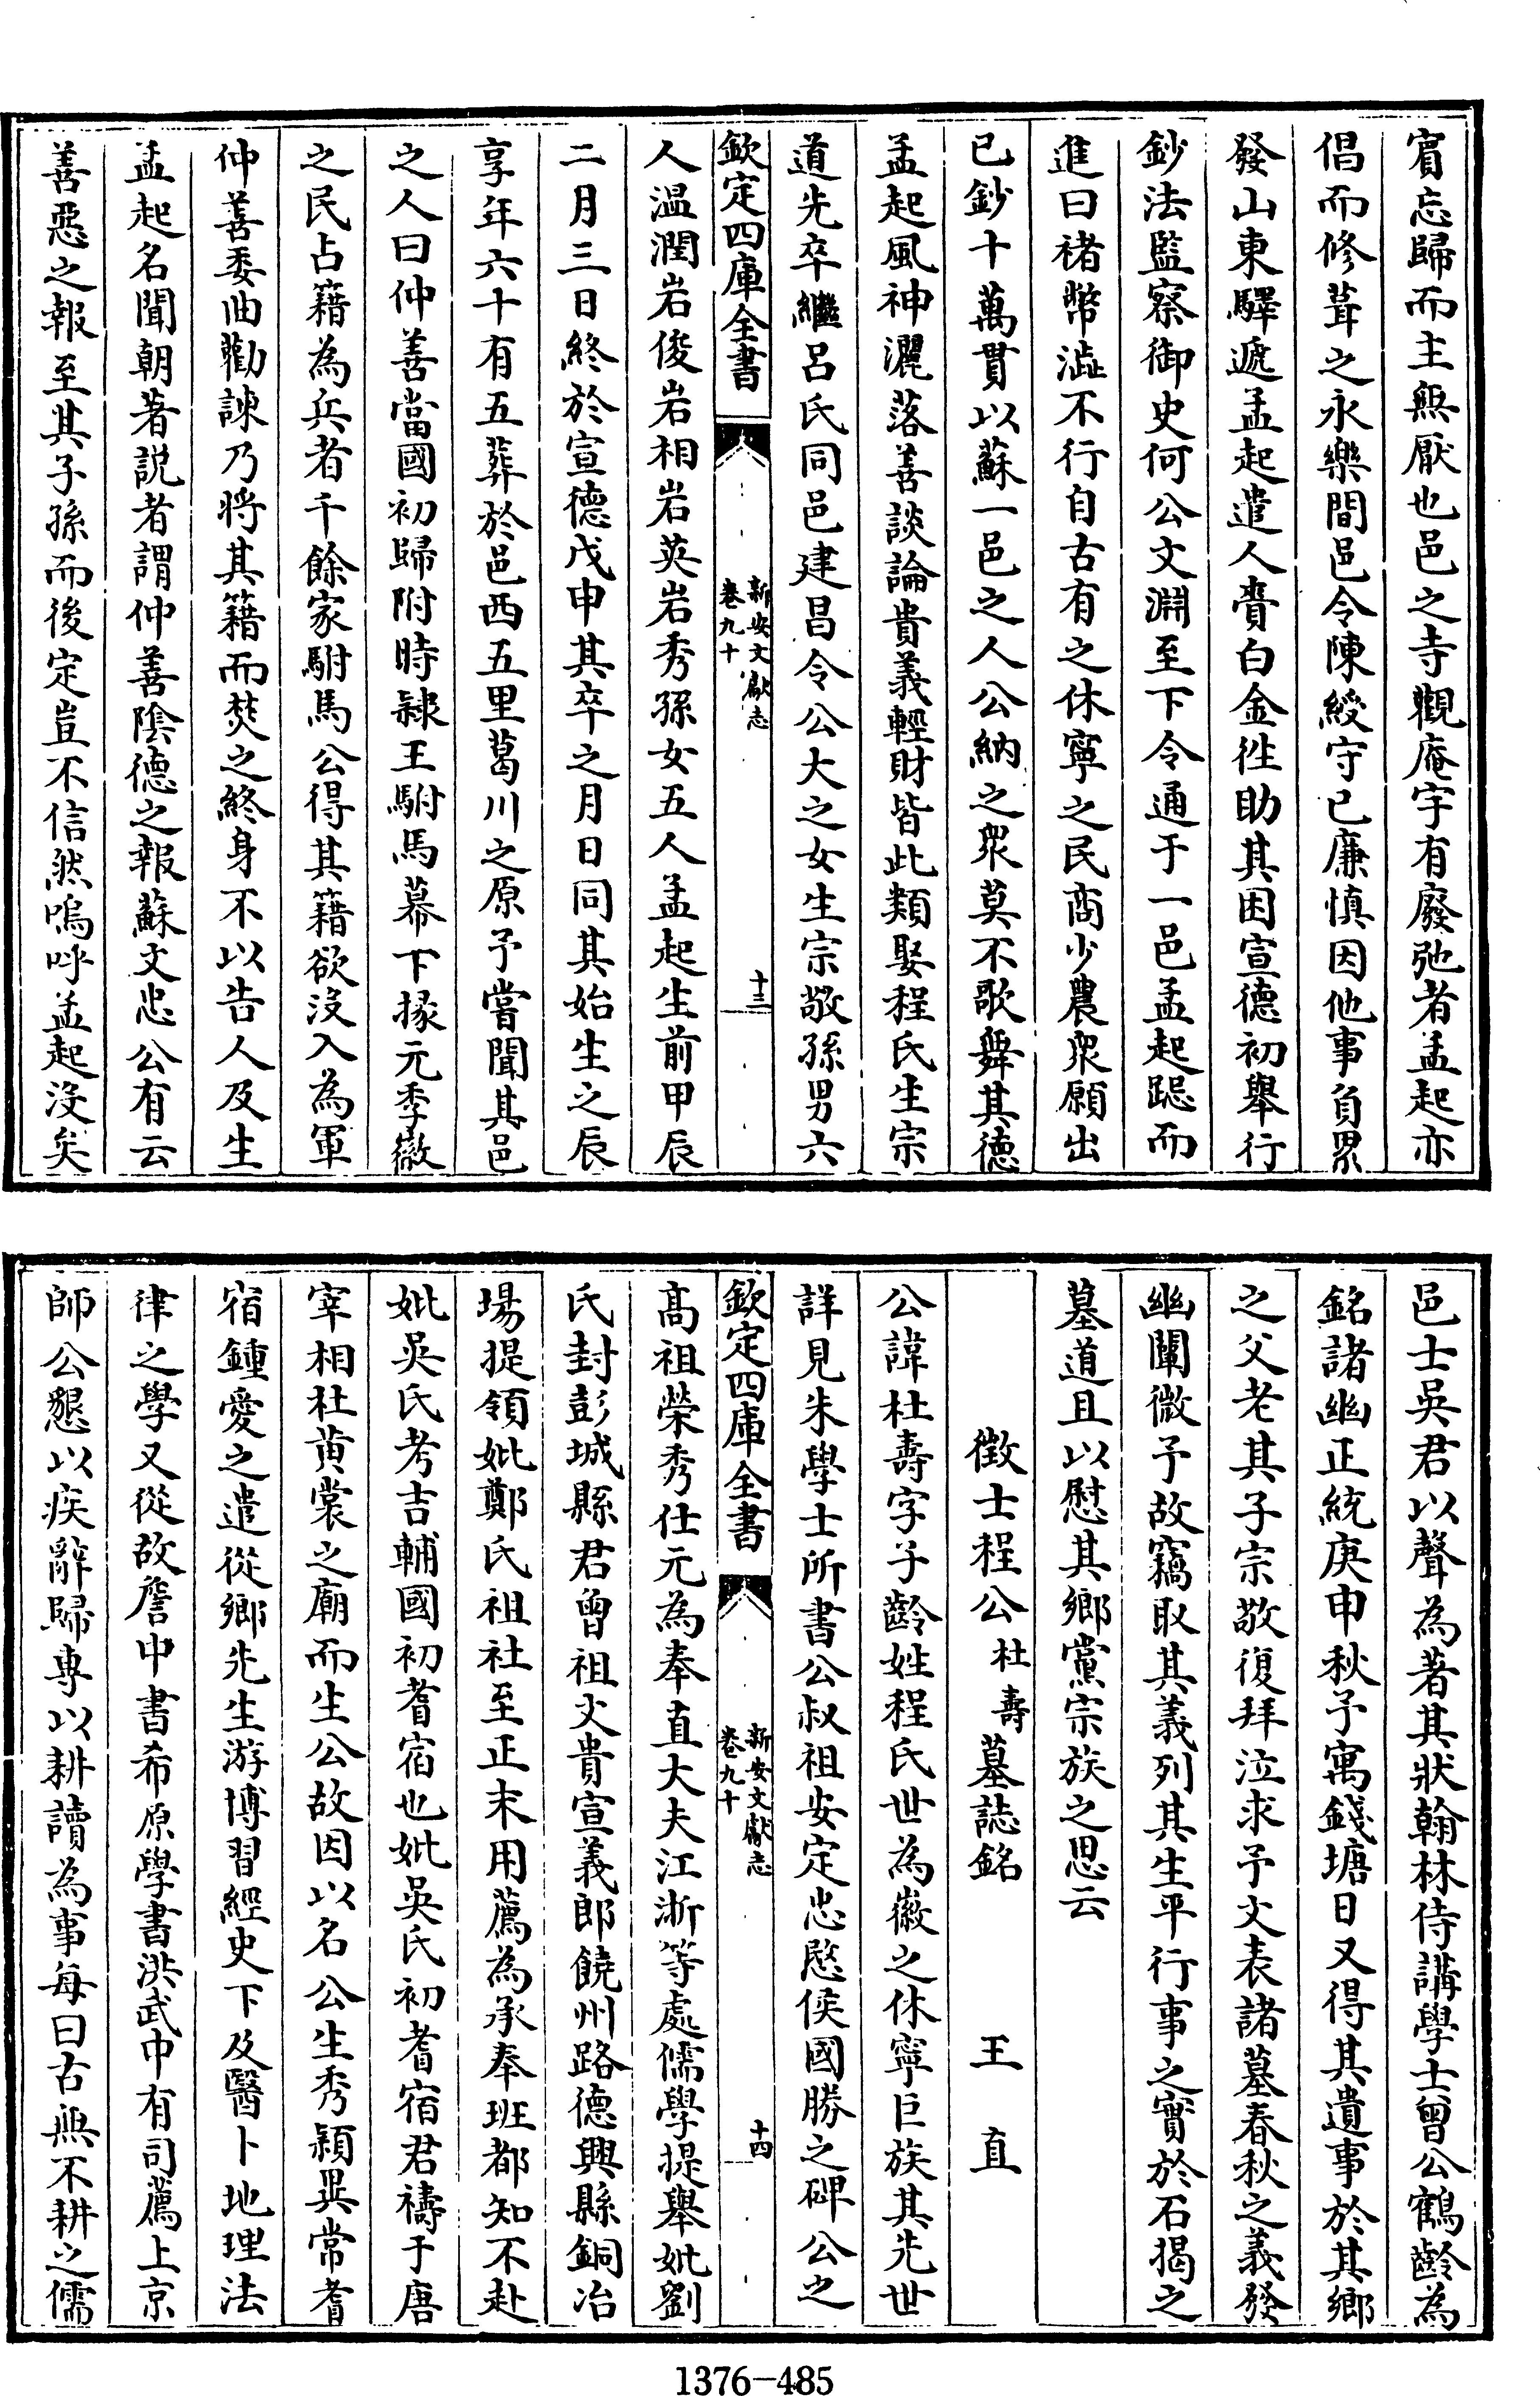 賔忘歸而主無厭也邑之寺觀庵宇有廢弛者孟起亦
倡而修葺之永樂間邑令陳綬守已廉慎因他事負累
發山東驛遞孟起遣人賫白金徃助其困宣德初舉行
鈔法監察御史何公文淵至下令通于一邑孟起跽而
進曰禇幣澁不行自古有之休寧之民商少農衆願出
已鈔十萬貫以蘇一邑之人公納之衆莫不歌舞其德
孟起風神灑落善談論貴義輕財皆此類娶程氏生宗
道先卒繼呂氏同邑建昌令公大之女生宗敬孫男六
欽定四庫全書
新安文獻志
卷九十
十三
人溫潤岩俊岩相岩英岩秀孫女五人孟起生前甲辰
二月三日終於宣德戊申其卒之月日同其始生之辰
享年六十有五葬於邑西五里葛川之原予嘗聞其邑
之人曰仲善當國初歸附時隷王駙馬幕下掾元季徽
之民占籍為兵者千餘家駙馬公得其籍欲沒入為軍
仲善委曲勸諫乃將其籍而焚之終身不以告人及生
孟起名聞朝著說者謂仲善陰德之報蘇文忠公有云
善惡之報至其子孫而後定豈不信然嗚呼孟起沒矣
邑士吳君以聲為著其狀翰林侍講學士曾公鶴齡為
銘諸幽正統庚申秋予寓錢塘日又得其遺事於其鄉
之父老其子宗敬復拜泣求予文表諸墓春秋之義發
幽闡微予故竊取其義列其生平行事之實於石揭之
墓道且以慰其鄉黨宗族之思云
徵士程公杜壽墓誌銘 王直
公諱杜壽字子齡姓程氏世為徽之休寧巨族其先世
詳見朱學士所書公叔祖安定忠愍侯國勝之碑公之
欽定四庫全書
新安文獻志
卷九十
十四
高祖榮秀仕元為奉直大夫江浙等處儒學提舉妣劉
氏封彭城縣君曾祖文貴宣義郎饒州路德興縣銅冶
場提領妣鄭氏祖社至正末用薦為承奉班都知不赴
妣吳氏考吉輔國初耆宿也妣吳氏初耆宿君禱于唐
宰相杜黄裳之廟而生公故因以名公生秀穎異常耆
宿鍾愛之遣從鄉先生游博習經史下及醫卜地理法
律之學又從故詹中書希原學書洪武中有司薦上京
師公懇以疾辭歸專以耕讀為事每曰古無不耕之儒
1376-485